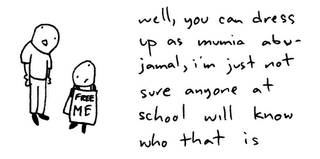 well, you can dress
up as mumia abu-
jamal, i'm just not
sure anyone at
school will know
who that is
FREE
ME